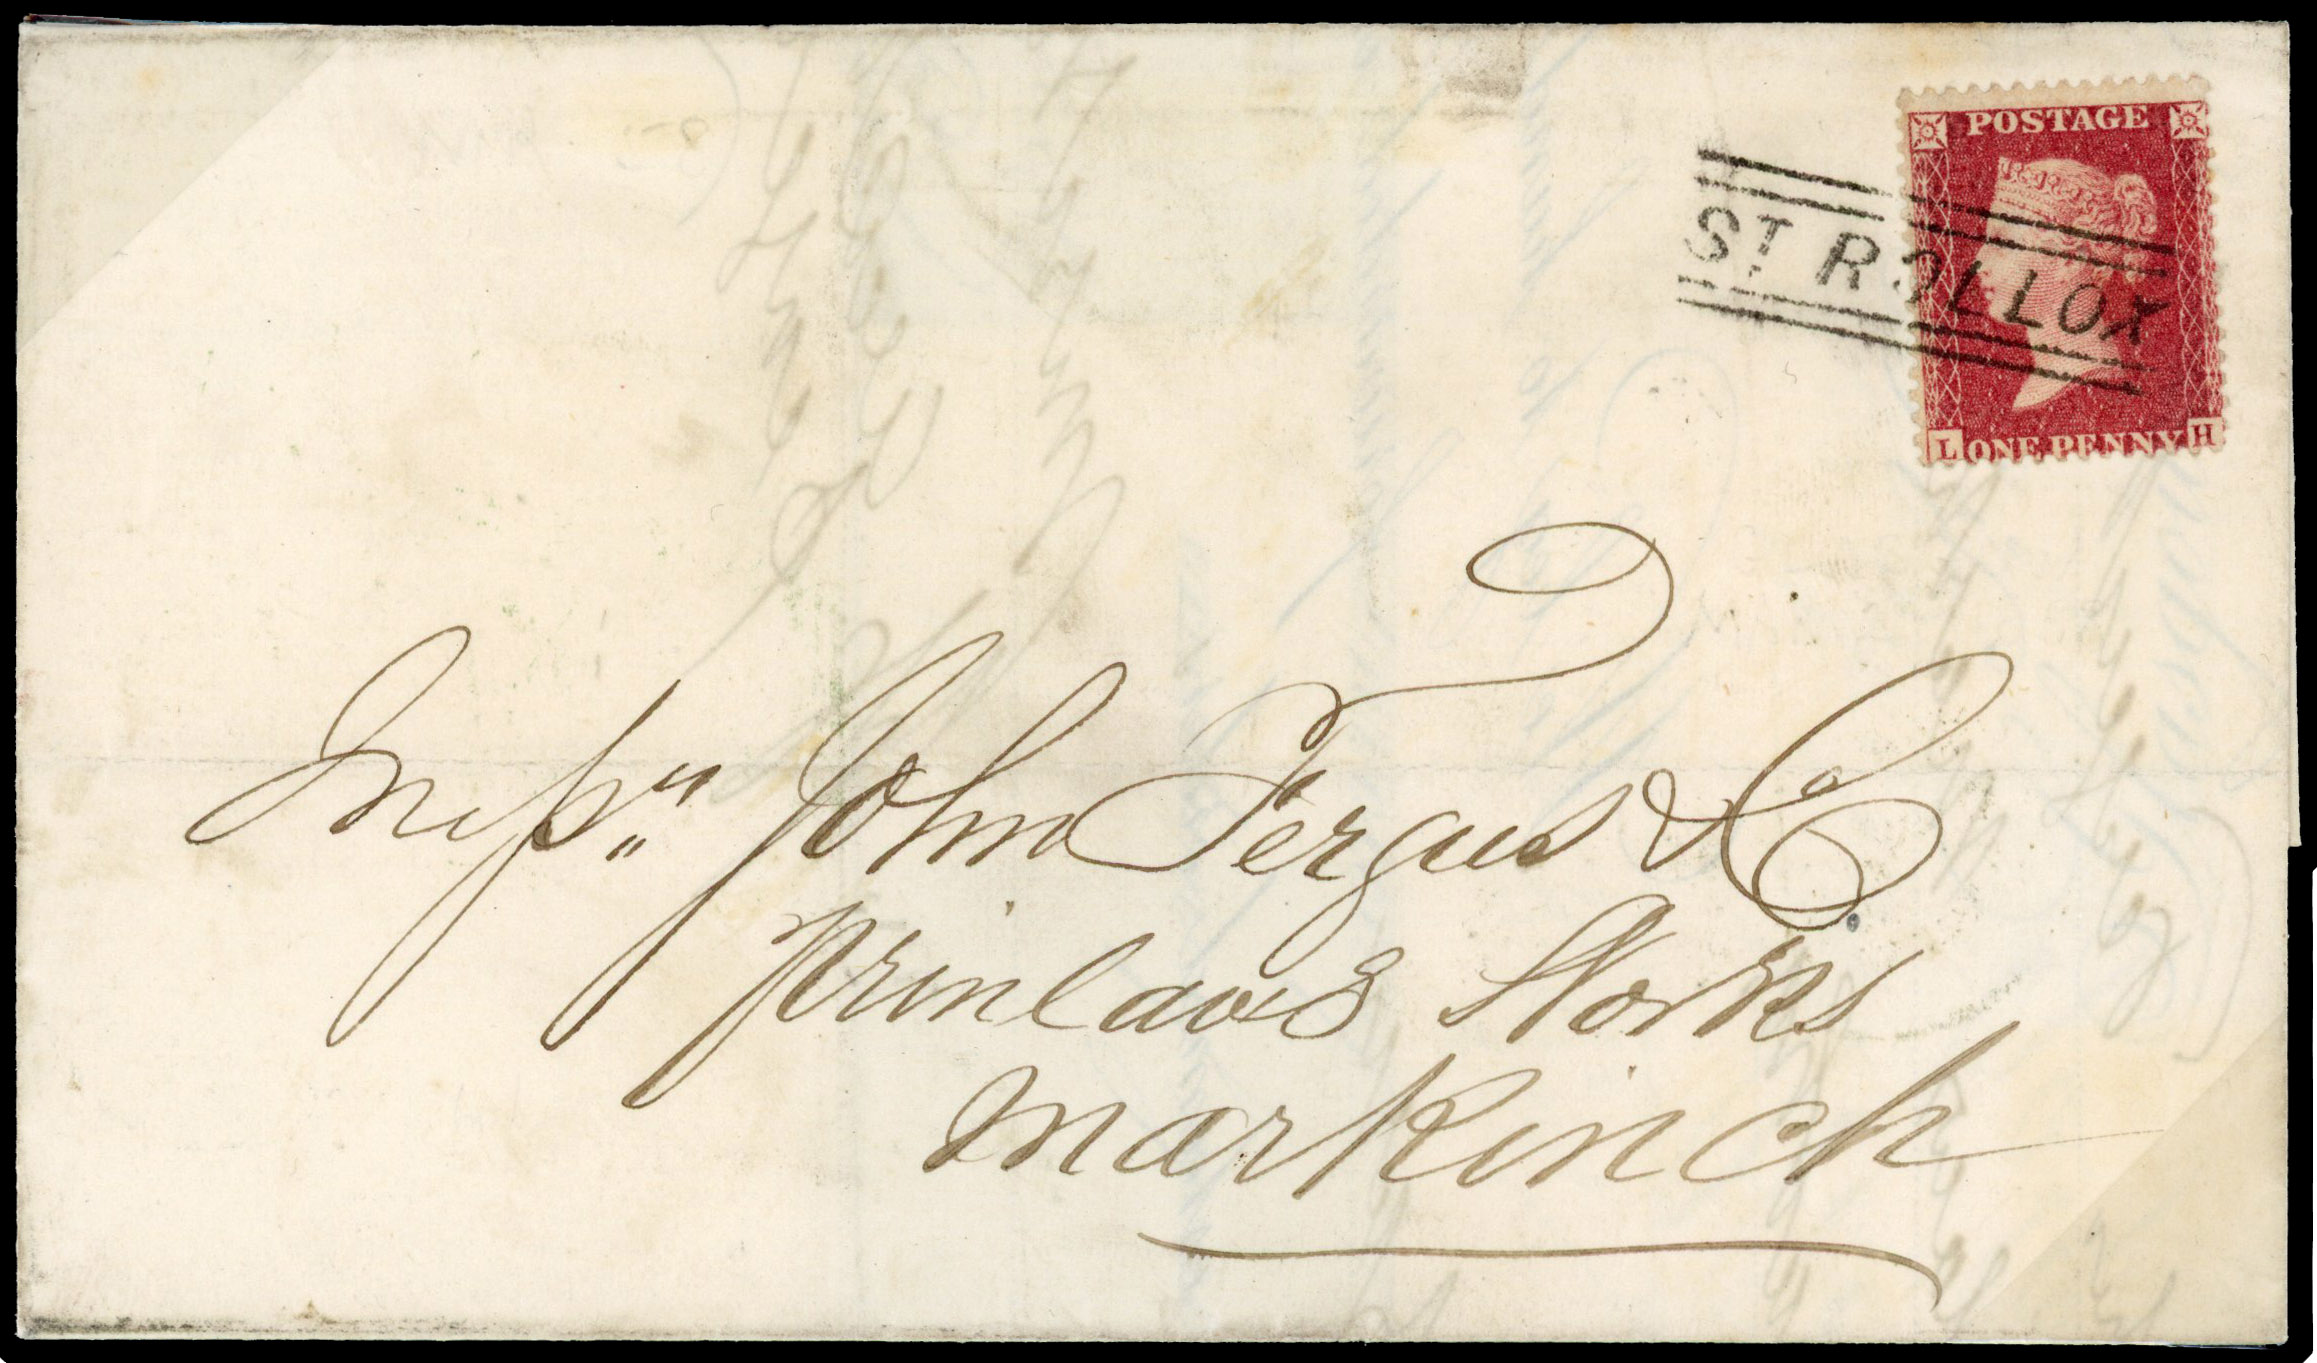 POSTAGE
ST ROLLOX
L ONE PENNY H
Messrs John Fergus & Co
Prinlaws Works
Markinch